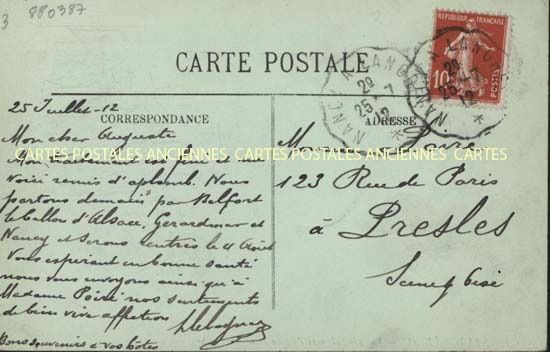 3 880387
REPUBLIQUE FRANÇAISE
10
POSTES
CARTE POSTALE
NANCY A LANGRES
2º
25-7
12
CORRESPONDANCE
ADRESSE
25 Juillet-12
Mon cher Auguste
CARTES POSTALES ANCIENNES CARTES POSTALES ANCIENNES CARTES
voici remis d'aplomb. Nous
partons demain par Belfort
le Ballon d'Alsace, Gerardmer et
Nancy et serons rentrés le 4 Août
Vous espérant en bonne santé
nous vous envoyons ainsi qu'à
Madame nos sentiments
de bien vive affection
Bons souvenirs à vos hôtes
M
123 Rue de Paris
à Presles
Seine & Oise